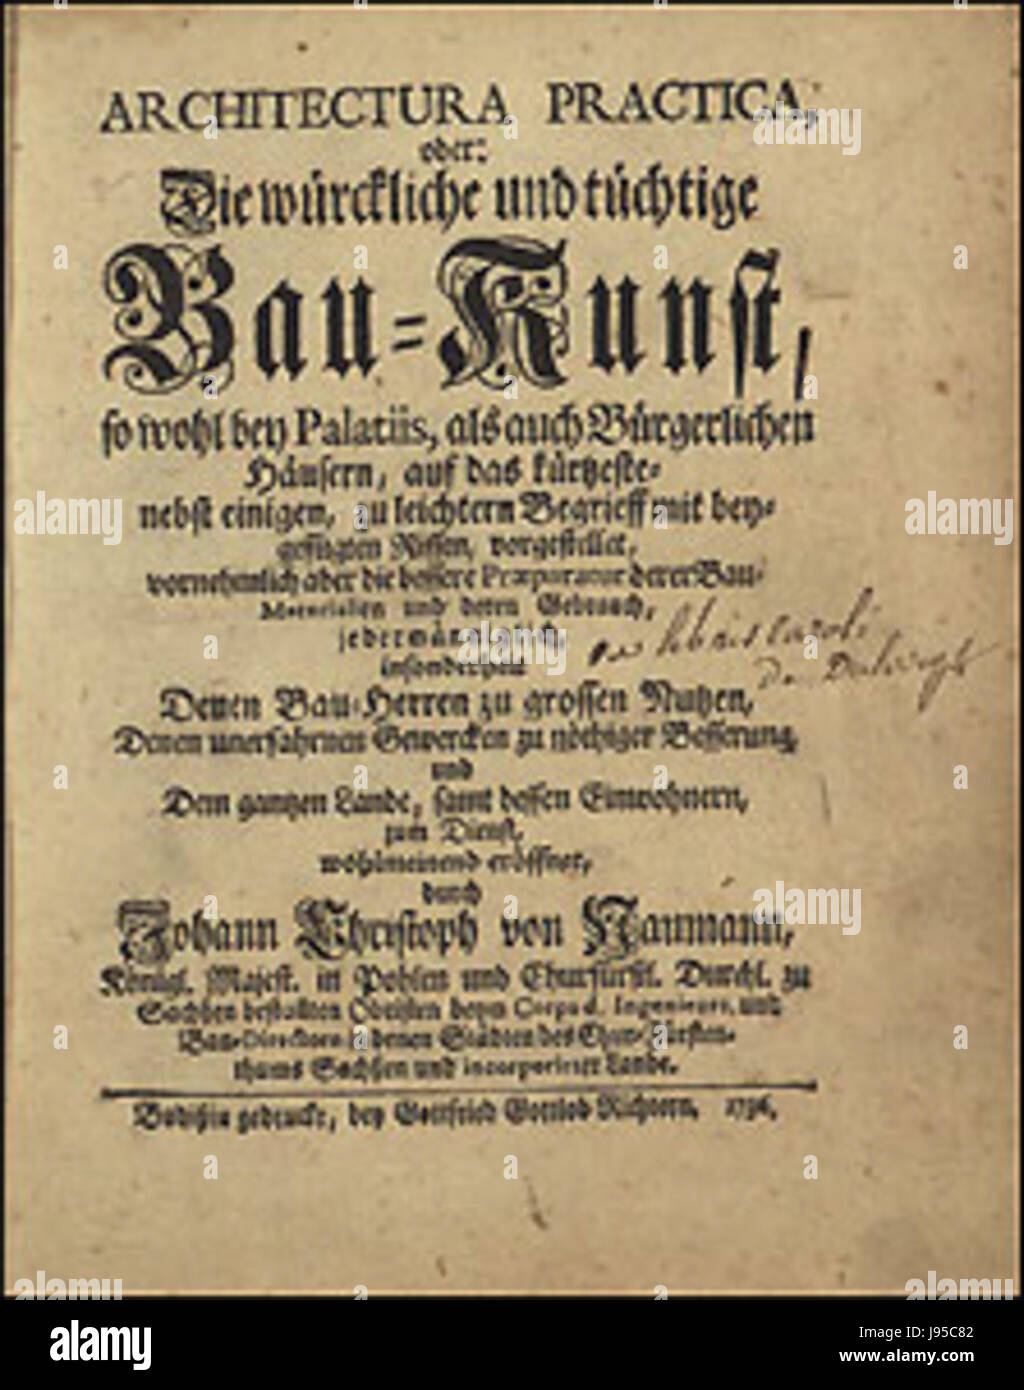 ARCHITECTURA PRACTICA,
oder:
Die würckliche und tüchtige
Bau-Kunst,
so wohl bey Palatiis, als auch Bürgerlichen
Häusern, auf das kürtzeste-
nebst einigen, zu leichtern Begrieff mit bey-
gefügten Rissen, vorgestellet,
vornehmlich aber die bessere Præparatur derer Bau-
Materialien und deren Gebrauch,
jedermänniglich,
insonderheit
Denen Bau-Herren zu grossen Nutzen,
Denen unerfahrnen Gewercken zu nöthiger Besserung,
und
Dem gantzen Lande, samt dessen Einwohnern,
zum Dienst,
wohlmeinend eröffnet,
durch
Johann Christoph von Naumann,
Königl. Majest. in Pohlen und Churfürstl. Durchl. zu
Sachsen bestallten Obristen beym Corps d. Ingenieurs, und
Bau-Directorn in denen Städten des Chur-Fürsten-
thums Sachsen und incorporirter Lande.
Budißin gedruckt, bey Gottfried Gottlob Richtern, 1736.
alamy
a
alamy
www.alamy.com
J95C82